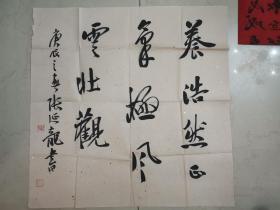 養浩然正
氣極風
雲壯觀
庚辰之春張延龍書